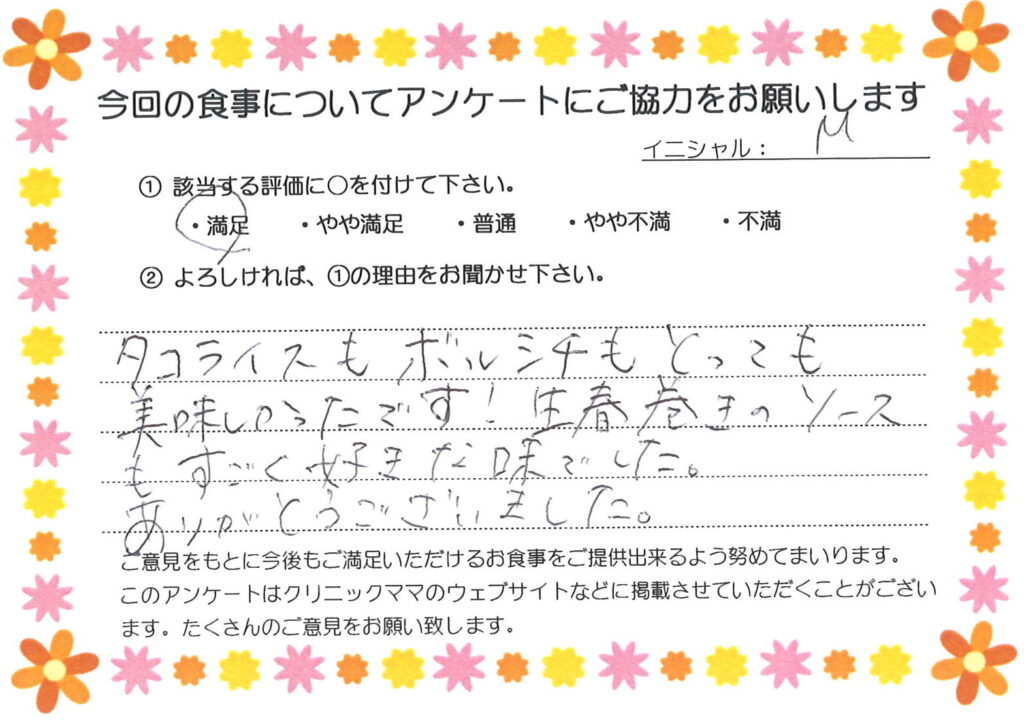 今回の食事についてアンケートにご協力をお願いします
イニシャル： M
① 該当する評価に〇を付けて下さい。
・満足 ・やや満足 ・普通 ・やや不満 ・不満
② よろしければ、①の理由をお聞かせ下さい。
タコライスも ボルシチも とっても
美味しかったです！生春巻きのソース
もすごく好きな味でした。
ありがとうございました。
ご意見をもとに今後もご満足いただけるお食事をご提供出来るよう努めてまいります。
このアンケートはクリニックママのウェブサイトなどに掲載させていただくことがござい
ます。たくさんのご意見をお願い致します。